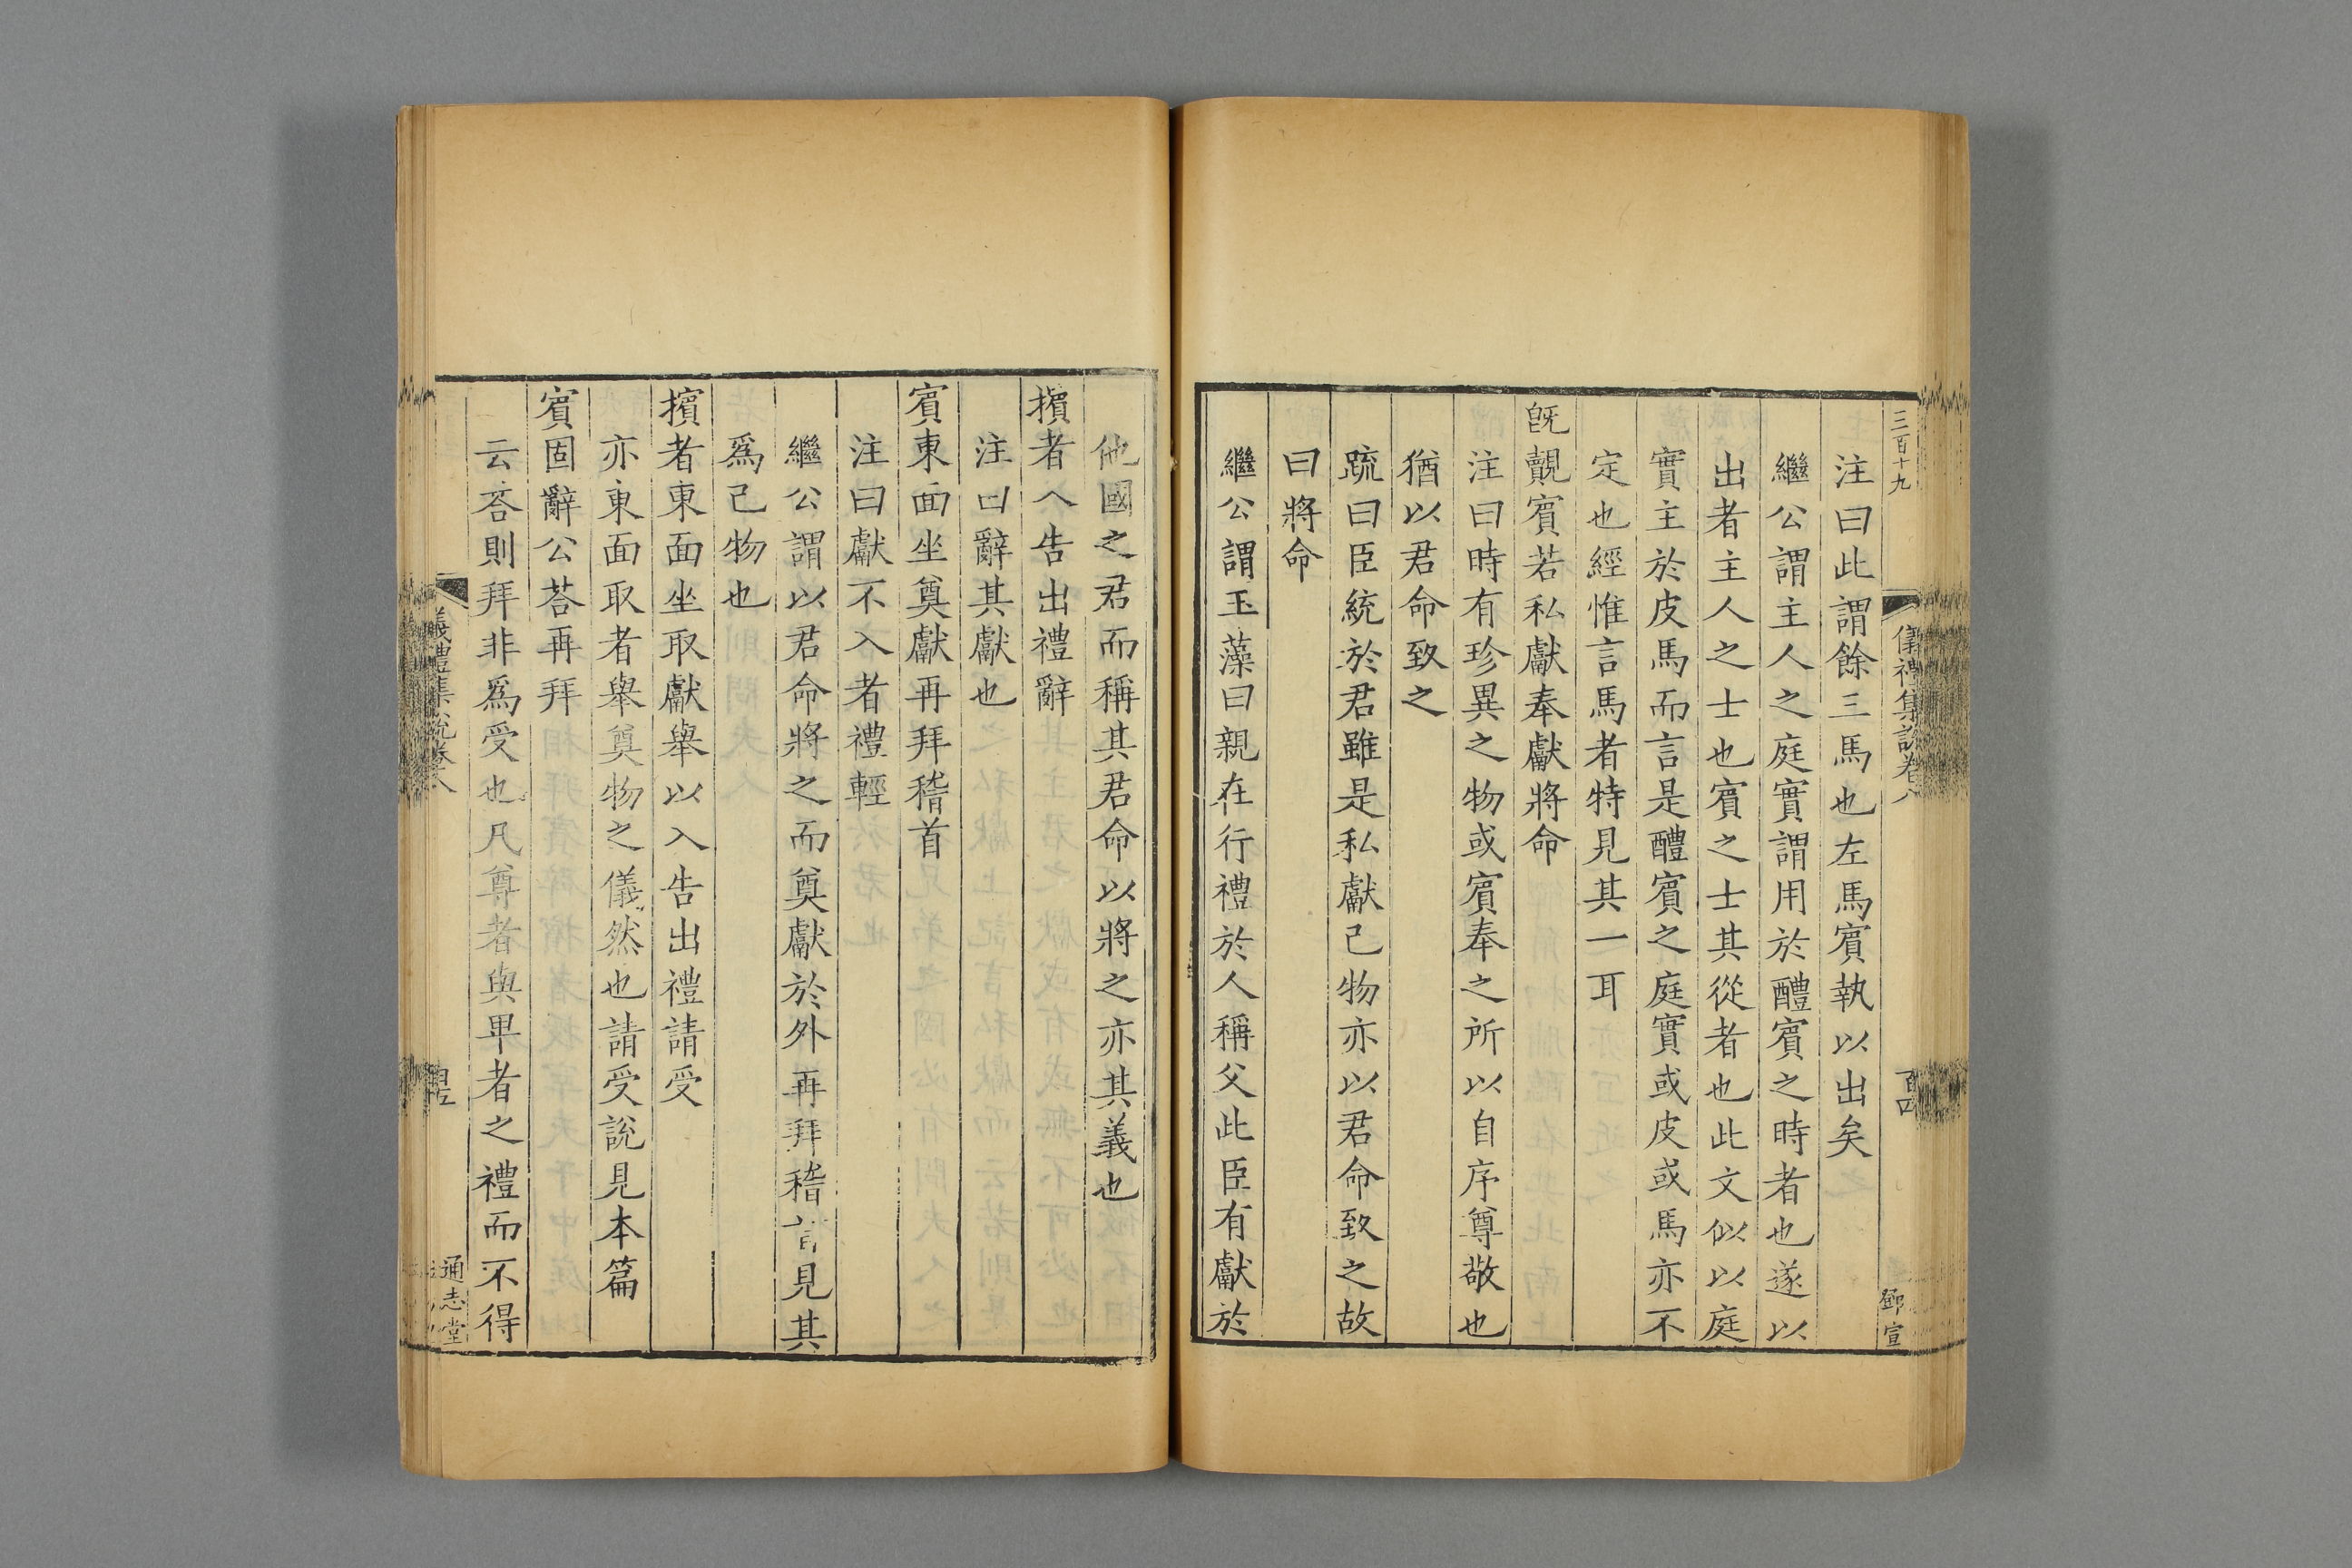 三百十九
儀禮集說卷八
百四
鄧宣
注曰此謂餘三馬也左馬賓執以出矣
繼公謂主人之庭實謂用於醴賓之時者也遂以
出者主人之士也賓之士其從者也此文似以庭
實主於皮馬而言是醴賓之庭實或皮或馬亦不
定也經惟言馬者特見其一耳
旣覿賓若私獻奉獻將命
注曰時有珍異之物或賓奉之所以自序尊敬也
猶以君命致之
疏曰臣統於君雖是私獻己物亦以君命致之故
曰將命
繼公謂玉藻曰親在行禮於人稱父此臣有獻於
他國之君而稱其君命以將之亦其義也
擯者入告出禮辭
注曰辭其獻也
賓東面坐奠獻再拜稽首
注曰獻不入者禮輕
繼公謂以君命將之而奠獻於外再拜稽首見其
爲己物也
擯者東面坐取獻舉以入告出禮請受
亦東面取者舉奠物之儀然也請受說見本篇
賓固辭公荅再拜
云荅則拜非爲受也凡尊者與卑者之禮而不得
儀禮集說卷八
通志堂